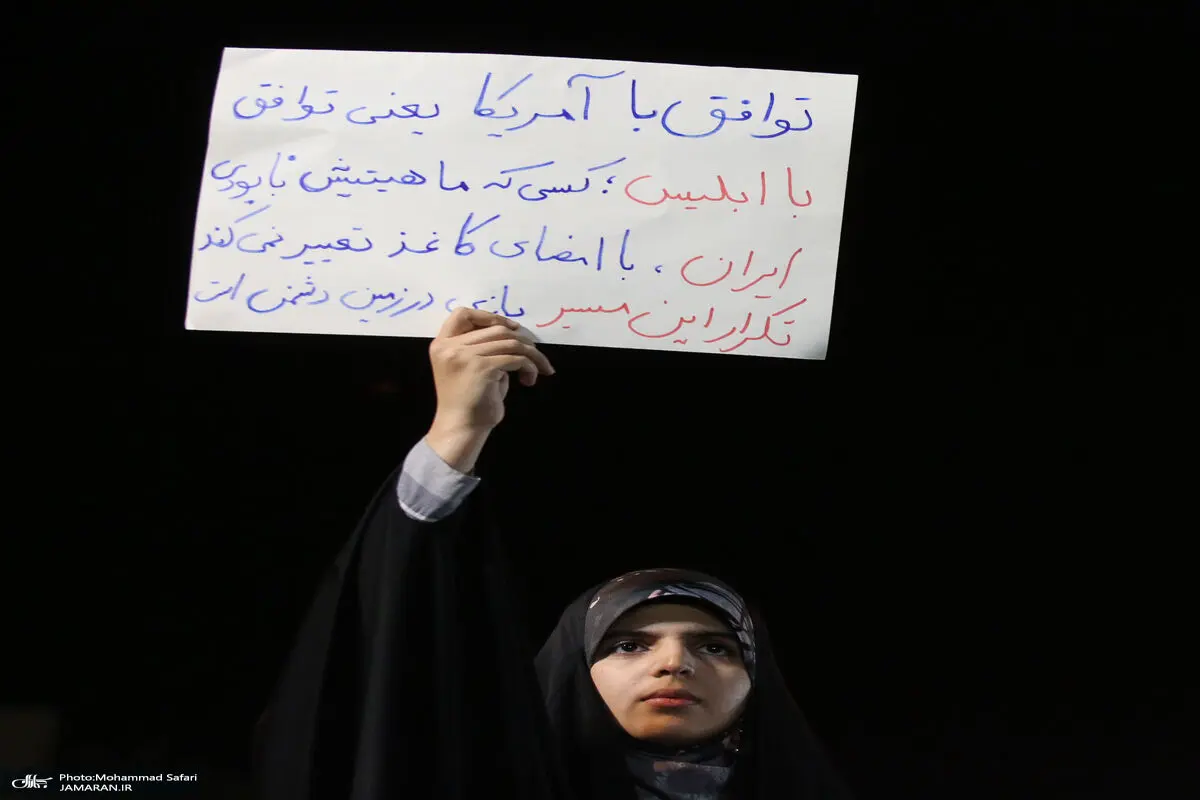 توافق با آمریکا یعنی توافق
با ابلیس؛ کسی که ماهیتیش نابودی
ایران، با امضای کاغذ تغییر نمی‌کند
تکرار این مسیر بازی در زمین دشمن است
Photo:Mohammad Safari
JAMARAN.IR